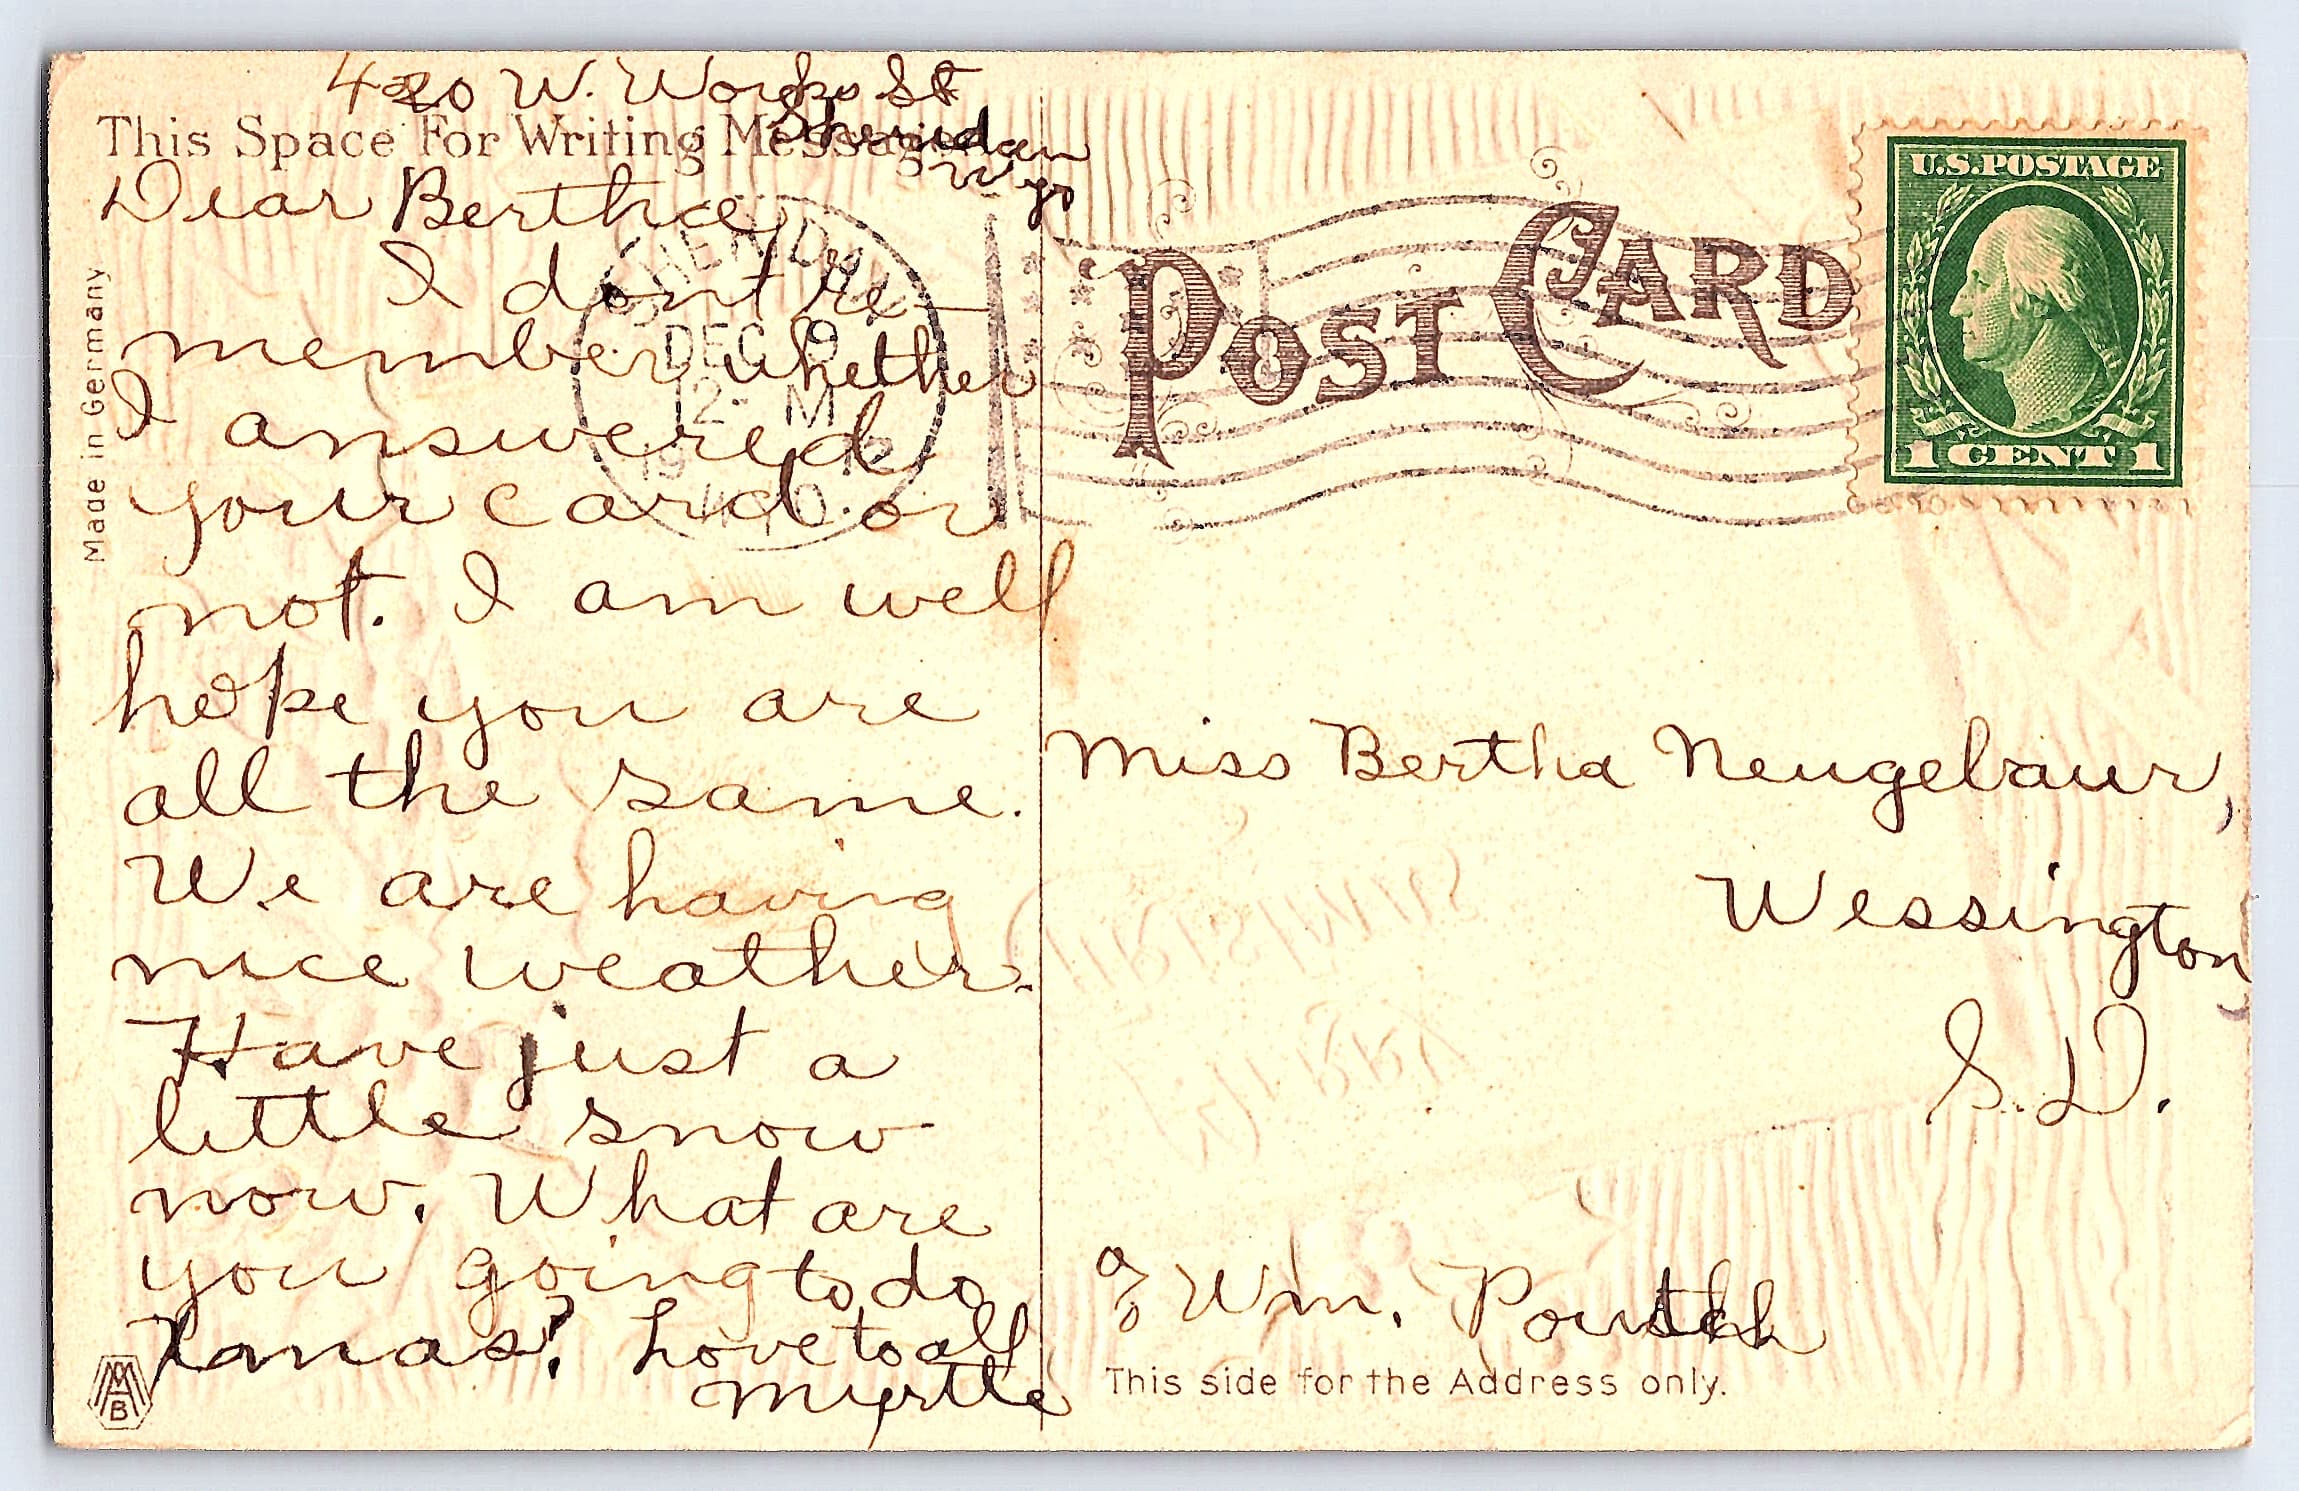 420 W. Works St
Sheridan
Wyo
This Space For Writing Messages
Dear Bertha,
I dont re-
member whether
I answered
your card or
not. I am well
hope you are
all the same.
We are having
nice weather.
Have just a
little snow
now. What are
you going to do
Xmas? Love to all
Myrtle
Made in Germany
SHERIDAN
DEC 9
12- M
1912
WYO.
POST CARD
U.S. POSTAGE
1 CENT 1
Miss Bertha Neugebaur,
Wessington,
S.D.
c/o Wm.
This side for the Address only.